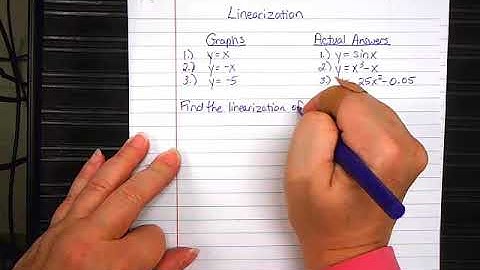 Linearization
Graphs
1.) y = x
2.) y = -x
3.) y = -5
Actual Answers
1.) y = sinx
2) y = x³-x
3) y= 25x²-0.05
Find the linearization of